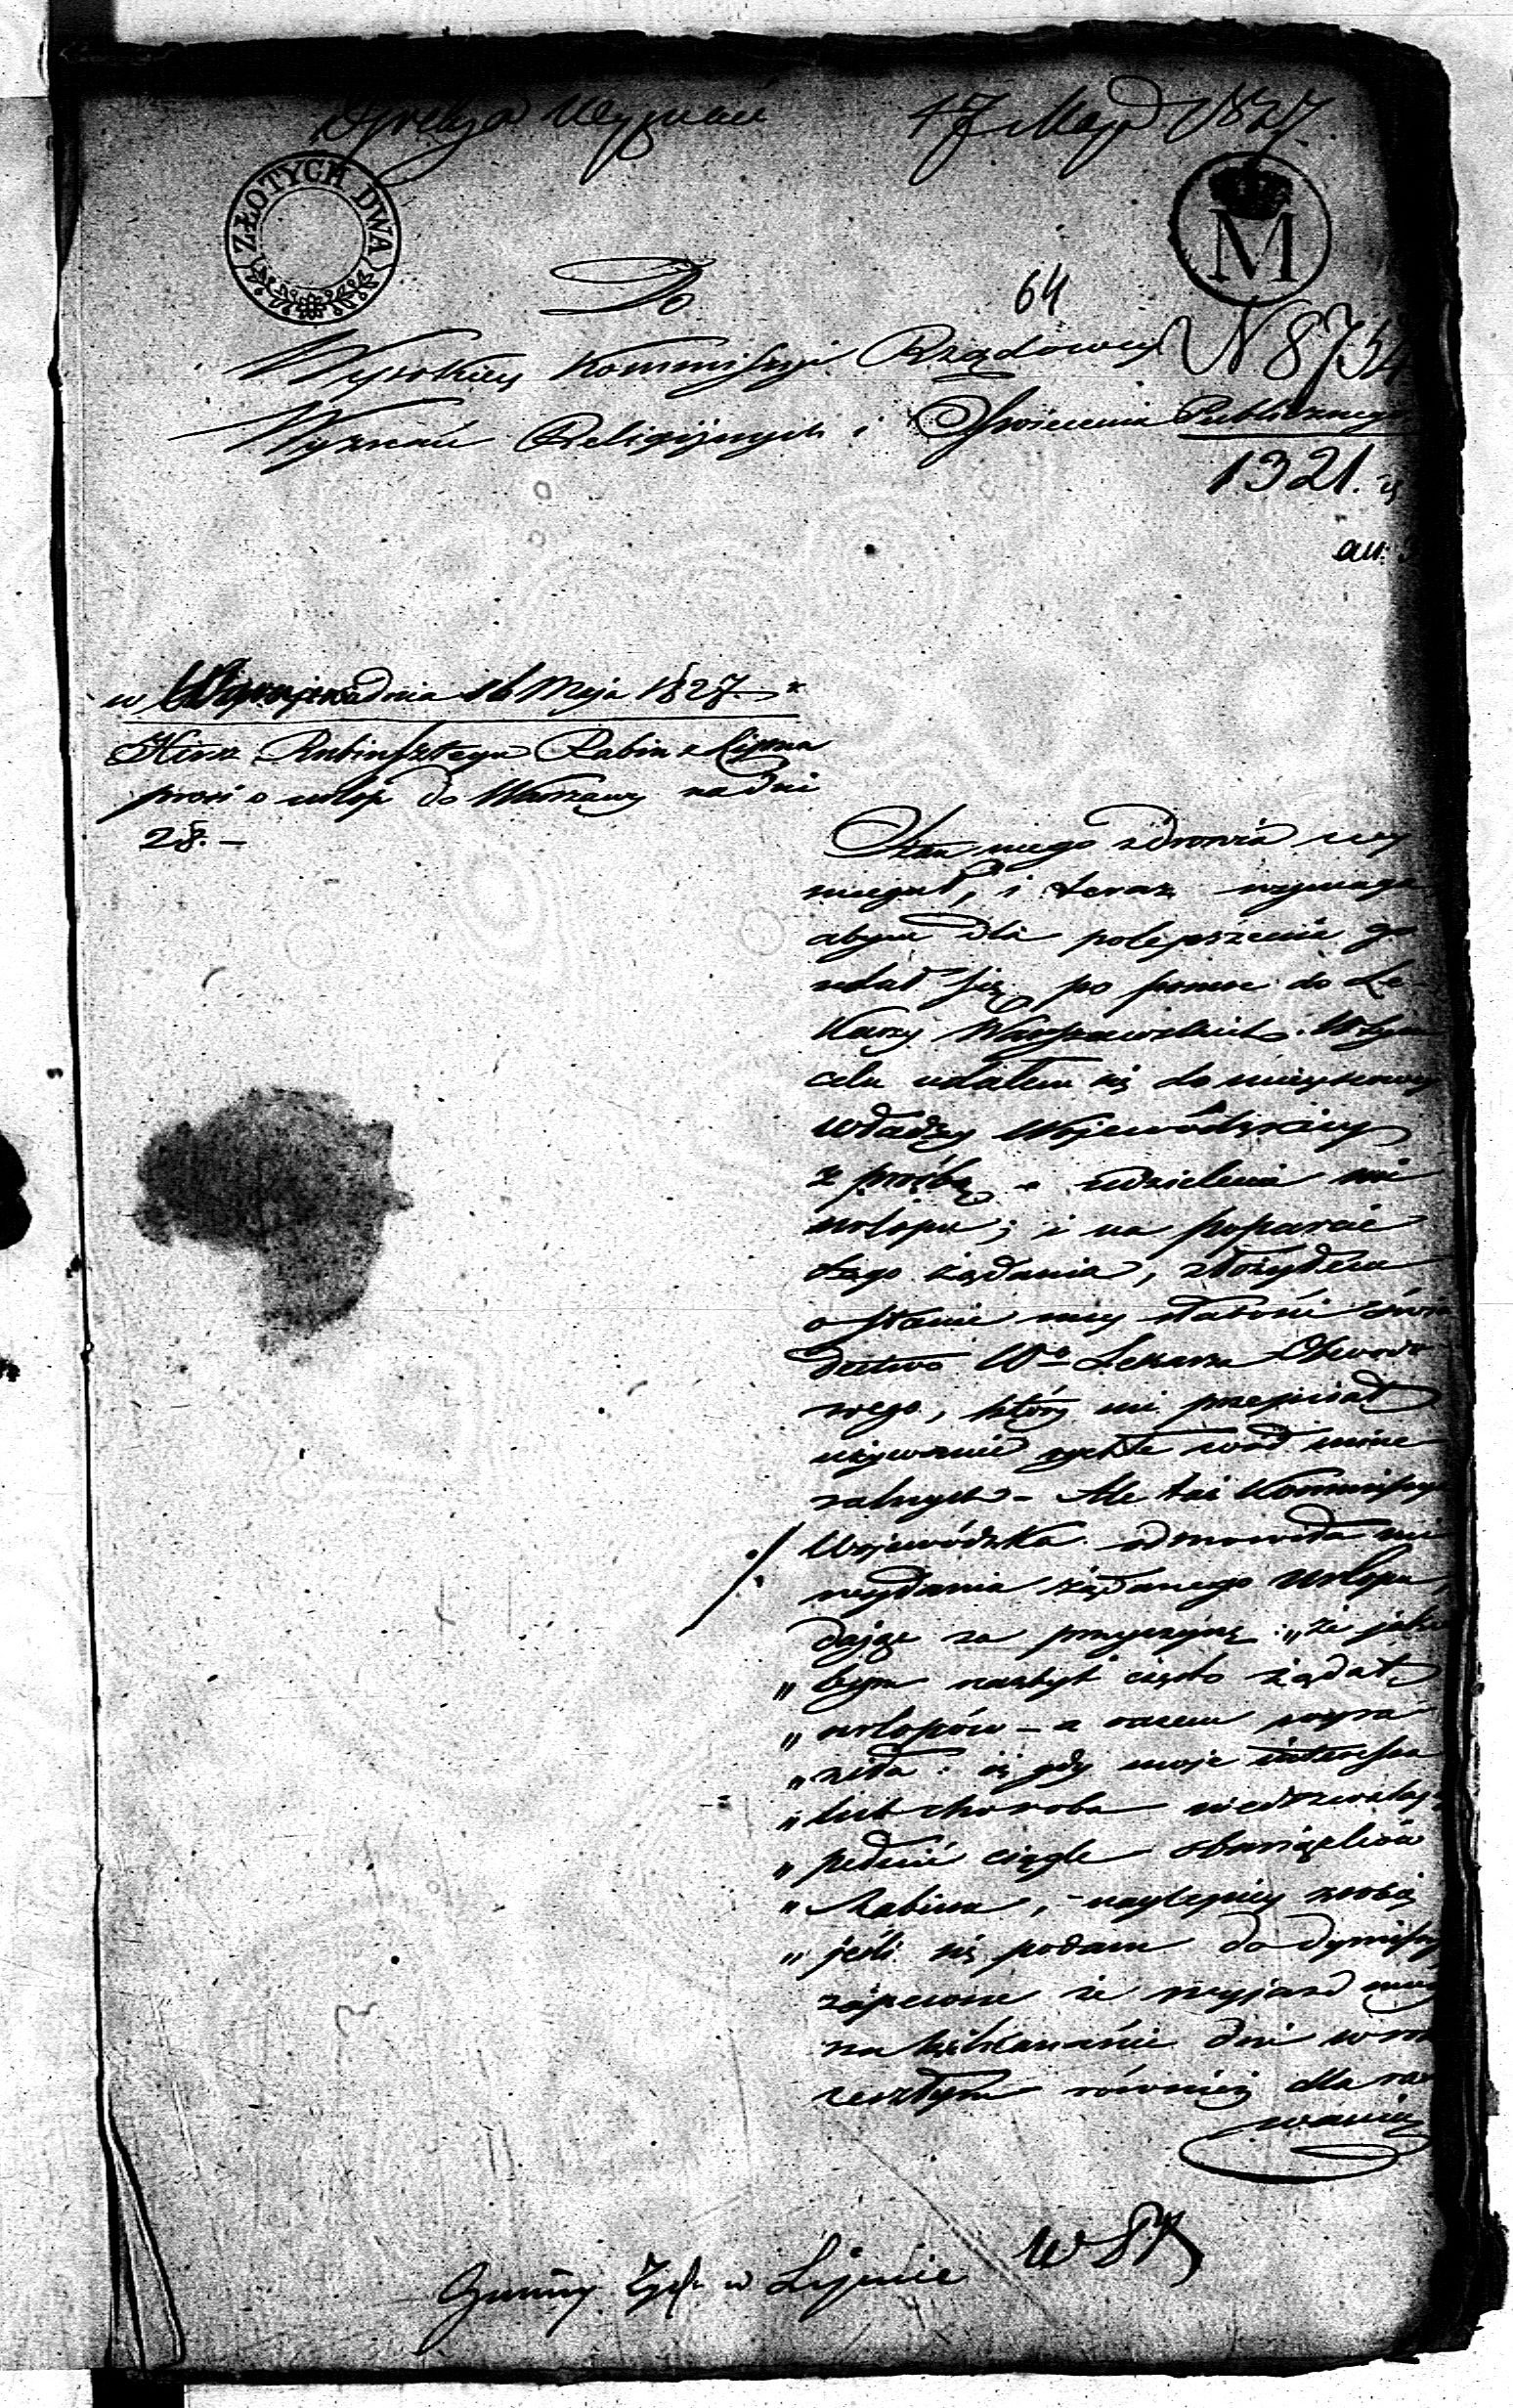 Dyrekcya Wyznań 17 Maja 1827
ZŁOTYCH DWA
M
Do
64
Wysokiey Kommissyi Rządowey
N 8754
Wyznań Religijnych i Oświecenia Publicznego
1321.
w dnia 16 Maja 1827 r
Hersz Rubinszteyn Rabin z Lipna
prosi o urlop do Warszawy na dni
28. –
Stan mego zdrowia wy
magał, i teraz wymaga
abym dla polepszenia go
udał się po pomoc do Le-
karzy Warszawskich. W tym
celu udałem się do mieyscowey
władzy Wojewódzkiey
z prośbą o udzielenie mi
urlopu; i na poparcie
tego żądania, złożyłem
o stanie mey słabości świa
dectwo Wo Lekarza Obwodo
wego, który mi przepisał
używanie wód mine
ralnych – Ale taż Kommissya
Wojewódzka odmówiła mi
wydania żądanego urlopu,
dając za przyczynę: „że jako
„ bym nazbyt często żądał
„ urlopów – a razem wyra
„ ziła: iż gdy moje interessa
„ lub choroba niedozwalają
„ pełnić ciągle obowiązków
„ Rabina, – naylepiey zrobię
„ jeśli się podam do dymissyi
zapewne że wyjazd móy
na kilkanaście dni w ro
zeszłym również dla ra
wania
Gminy Żyd. w Lipnie